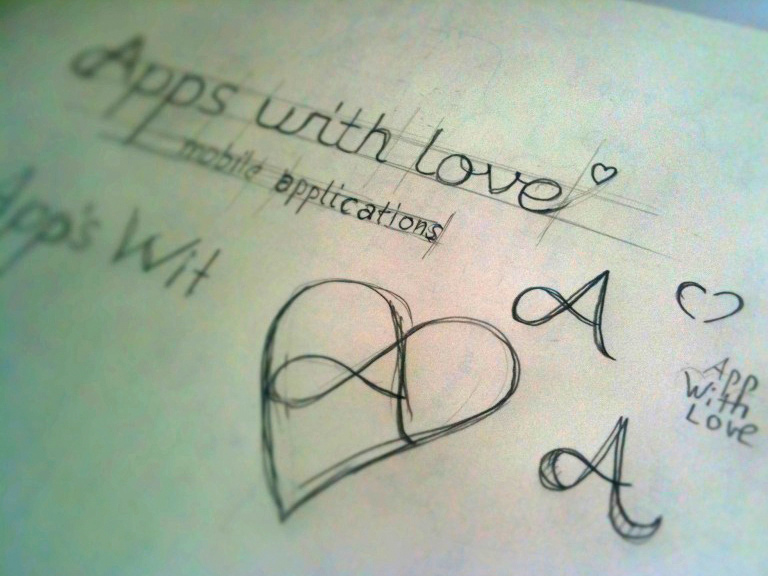 Apps with love
mobile applications
App's Wit
A
App
With
Love
A